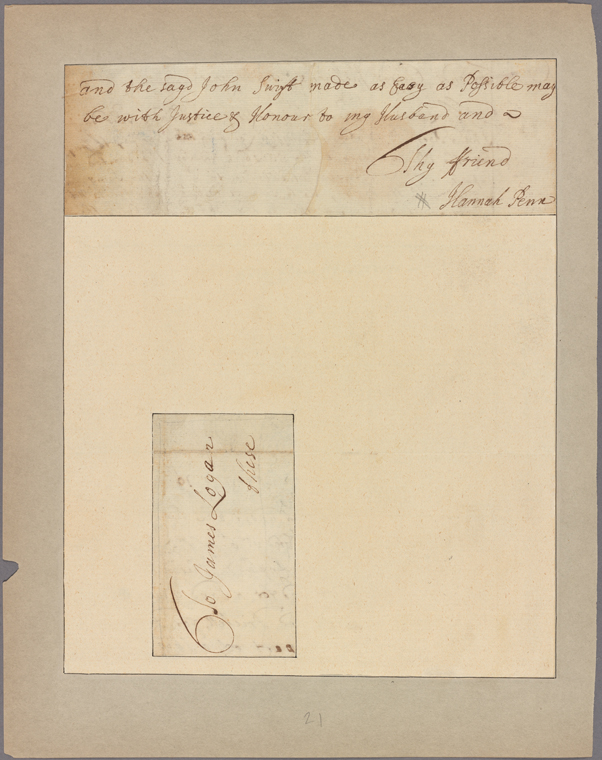 and the sayd John Swift made as Easy as Possible may
be with Justice & Honour to my Husband and
Thy ffriend
# Hannah Penn
To James Logan
these
21